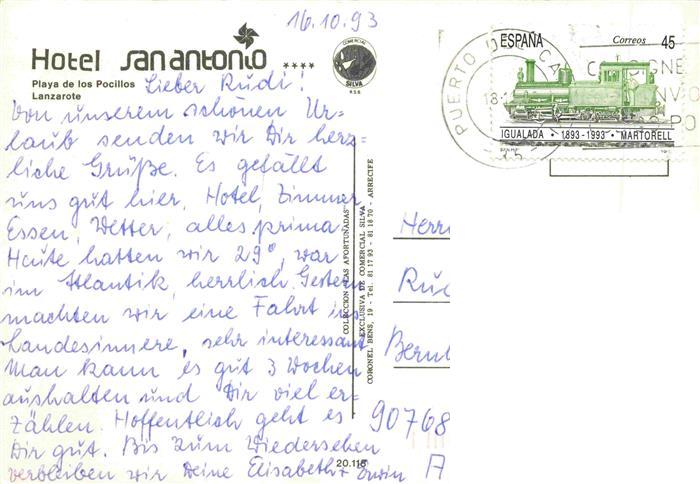 16.10.93
Hotel sanantonio ****
Playa de los Pocillos
Lanzarote
COMERCIAL
SILVA
Lieber Rudi!
Von unserem schönen Ur-
laub senden wir Dir herz-
liche Grüße. Es gefällt
uns gut hier, Hotel, Zimmer
Essen, Wetter, alles prima
Heute hatten wir 29°, war
im Atlantik, herrlich. Gestern
machten wir eine Fahrt ins
Landesinnere, sehr interessant
Man kann es gut 3 Wochen
aushalten und Dir viel er-
zählen. Hoffentlich geht es
Dir gut. Bis zum Wiedersehen
verbleiben wir Deine Elisabeth + Erwin
COLECCION "LAS AFORTUNADAS"
EXCLUSIVA DE COMERCIAL SILVA
CORONEL BENS, 19 - Tel. 81 17 93 - 81 18 70 - ARRECIFE
20.116
ESPAÑA Correos 45
IGUALADA · 1893-1993 · MARTORELL
PUERTO D
Herr
Rud
Bernh
90768
A